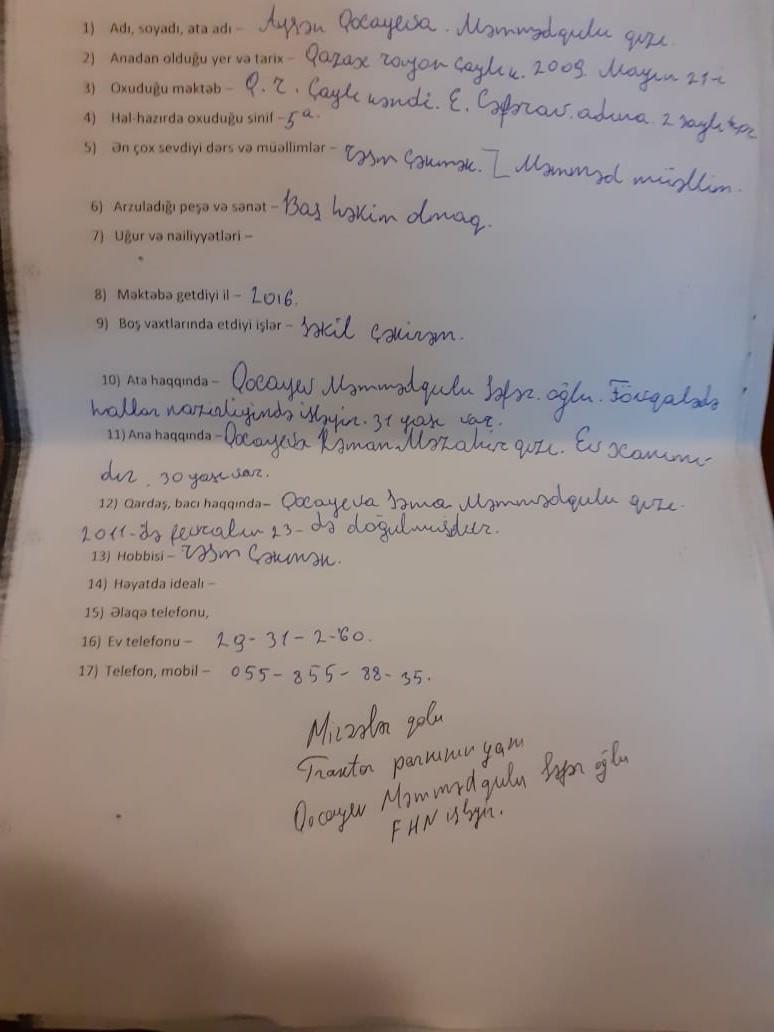 1) Adı, soyadı, ata adı – Aysən Qocayeva. Məmmədqulu qızı.
2) Anadan olduğu yer və tarix – Qazax rayon Çaylı k. 2009. Mayın 21-i
3) Oxuduğu məktəb – Q. r. Çaylı kəndi. E. Cəfərov. adına. 2 saylı
4) Hal-hazırda oxuduğu sinif – 5ᵃ.
5) Ən çox sevdiyi dərs və müəllimlər – rəsm çəkmək. Məmməd müəllim.
6) Arzuladığı peşə və sənət – Baş həkim olmaq.
7) Uğur və nailiyyətləri –
8) Məktəbə getdiyi il – 2016.
9) Boş vaxtlarında etdiyi işlər – şəkil çəkirəm.
10) Ata haqqında – Qocayev Məmmədqulu Səfər oğlu. Föuqaladə
hallar nazirliyində işləyir. 31 yaşı var.
11) Ana haqqında – Qocayeva Kəmalə Məzahir qızı. Ev xanımı-
dır. 30 yaşı var.
12) Qardaş, bacı haqqında – Qocayeva Səma Məmmədqulu qızı.
2011-də fevralın 23-də doğulmuşdur.
13) Hobbisi – rəsm çəkmək.
14) Həyatda idealı –
15) Əlaqə telefonu,
16) Ev telefonu – 29-31-2-60.
17) Telefon, mobil – 055-855-88-35.
Mirzələr qolu
Traktor parkının yanı
Qocayev Məmmədqulu Səfər oğlu
FHN işləyir.